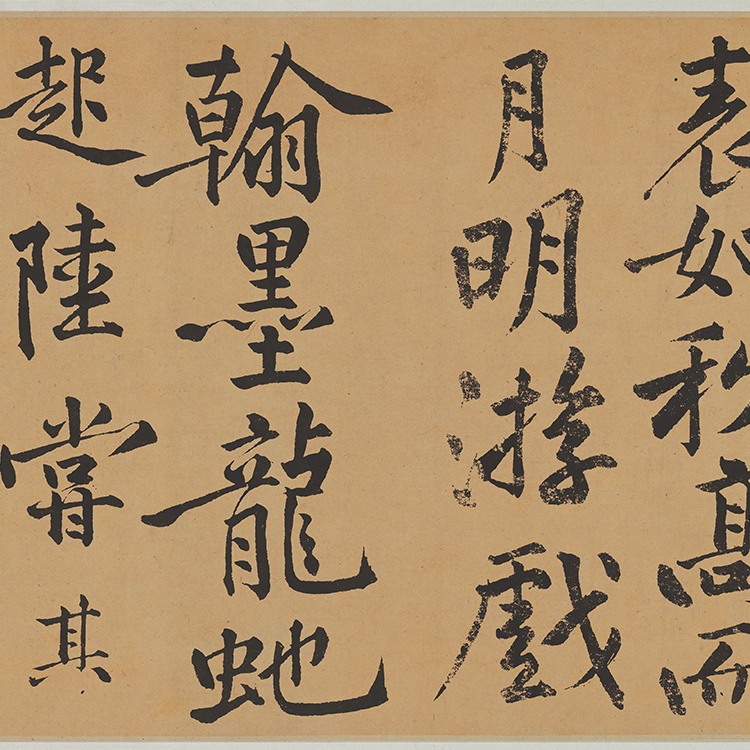 表如秋髙而
月明游戲
翰墨龍虵
起陸嘗其